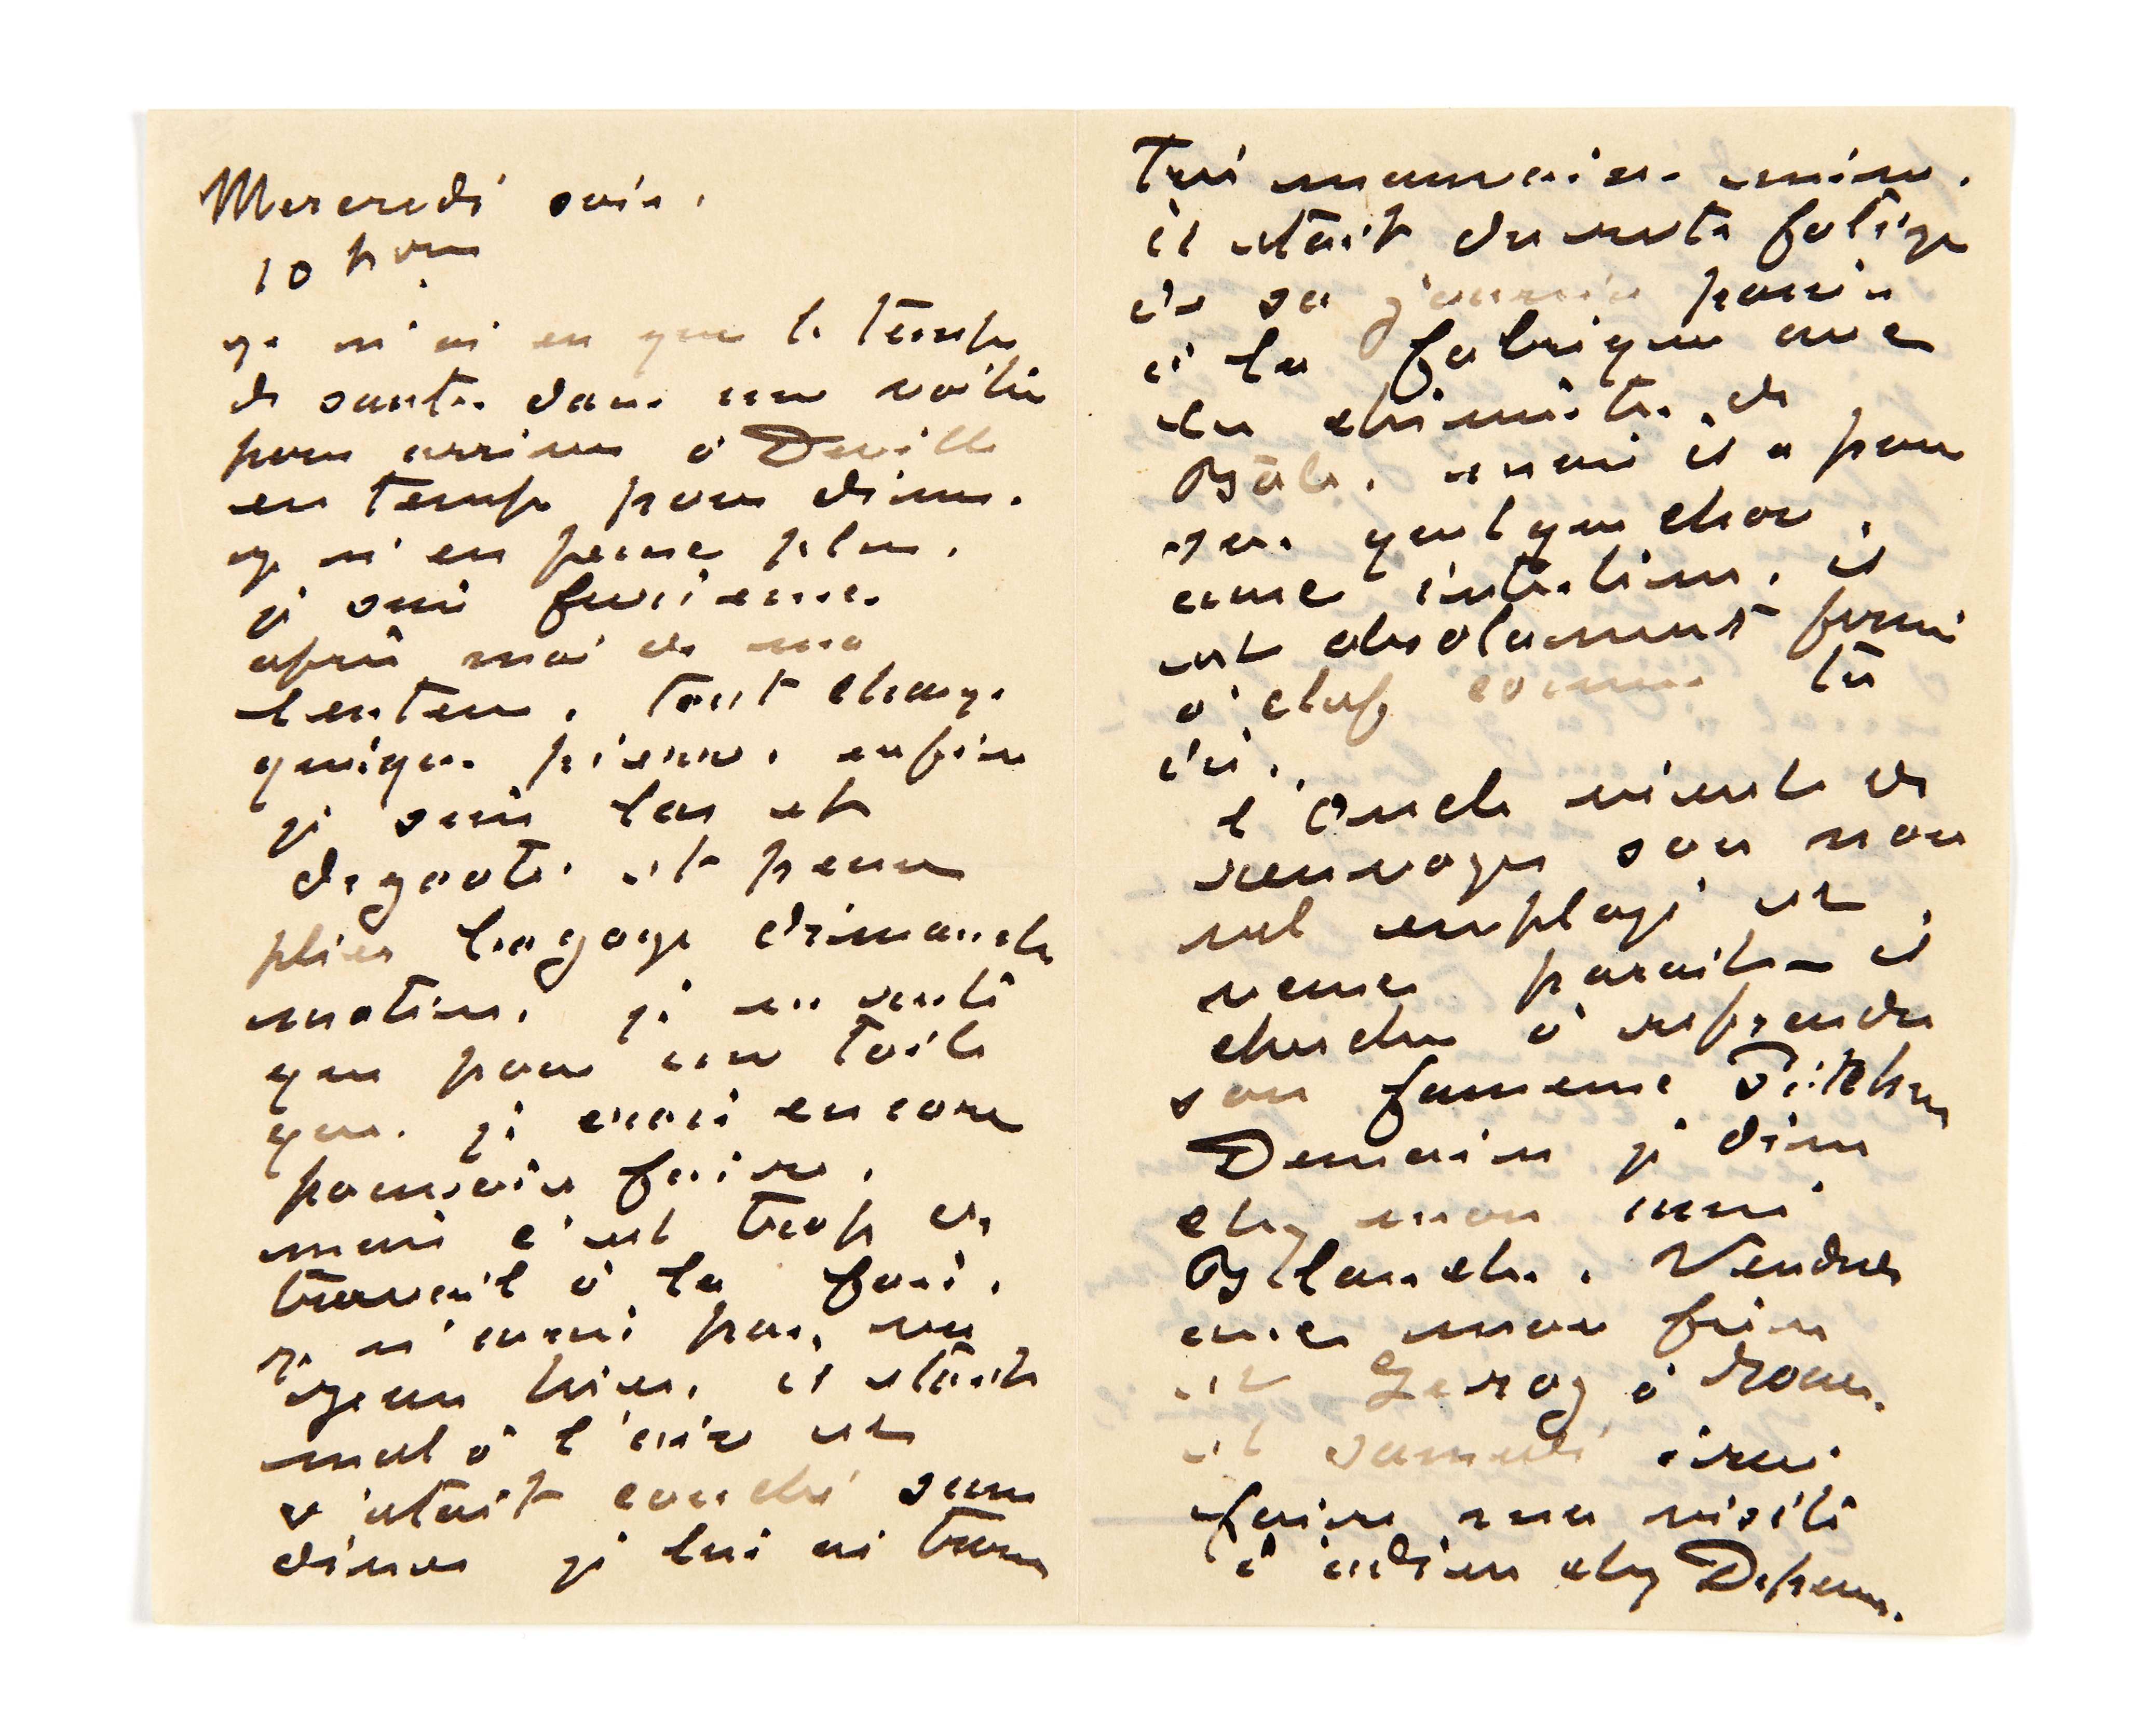 Mercredi soir.
10 h
je n'ai eu que le temps
de sauter dans une voiture
pour arriver à Deville
en temps pour diner.
je n'en peux plus.
je suis furieux
après moi de ma
lenteur. tout change
quoique pierre. enfin
je suis las et
dégouté et pense
plier bagage dimanche
matin. je ne reste
que pour une toile
que je crois encore
pouvoir faire.
mais c'est trop de
travail à la fois.
je n'avais pas vu
Jean hier. il était
mal à l'aise et
s'était couché sans
diner je lui ai trouvé
très mauvaise mine.
il était du reste fatigué
de sa journée passée
à la fabrique avec
un chimiste de
Bâle. mais il a pour
sur quelque chose.
avec intestins. il
est absolument forcé
à chef comme tu
dis.
l'Oncle vient de
renvoyer son nou
vel employé et
veux paraitre il
cherche à reprendre
son fameux
Demain je dine
chez mon ami
Blanche. Vendredi
avec mon frère
et Geroy à Rouen.
et samedi irai
faire une visite
d'adieu chez Depeaux.